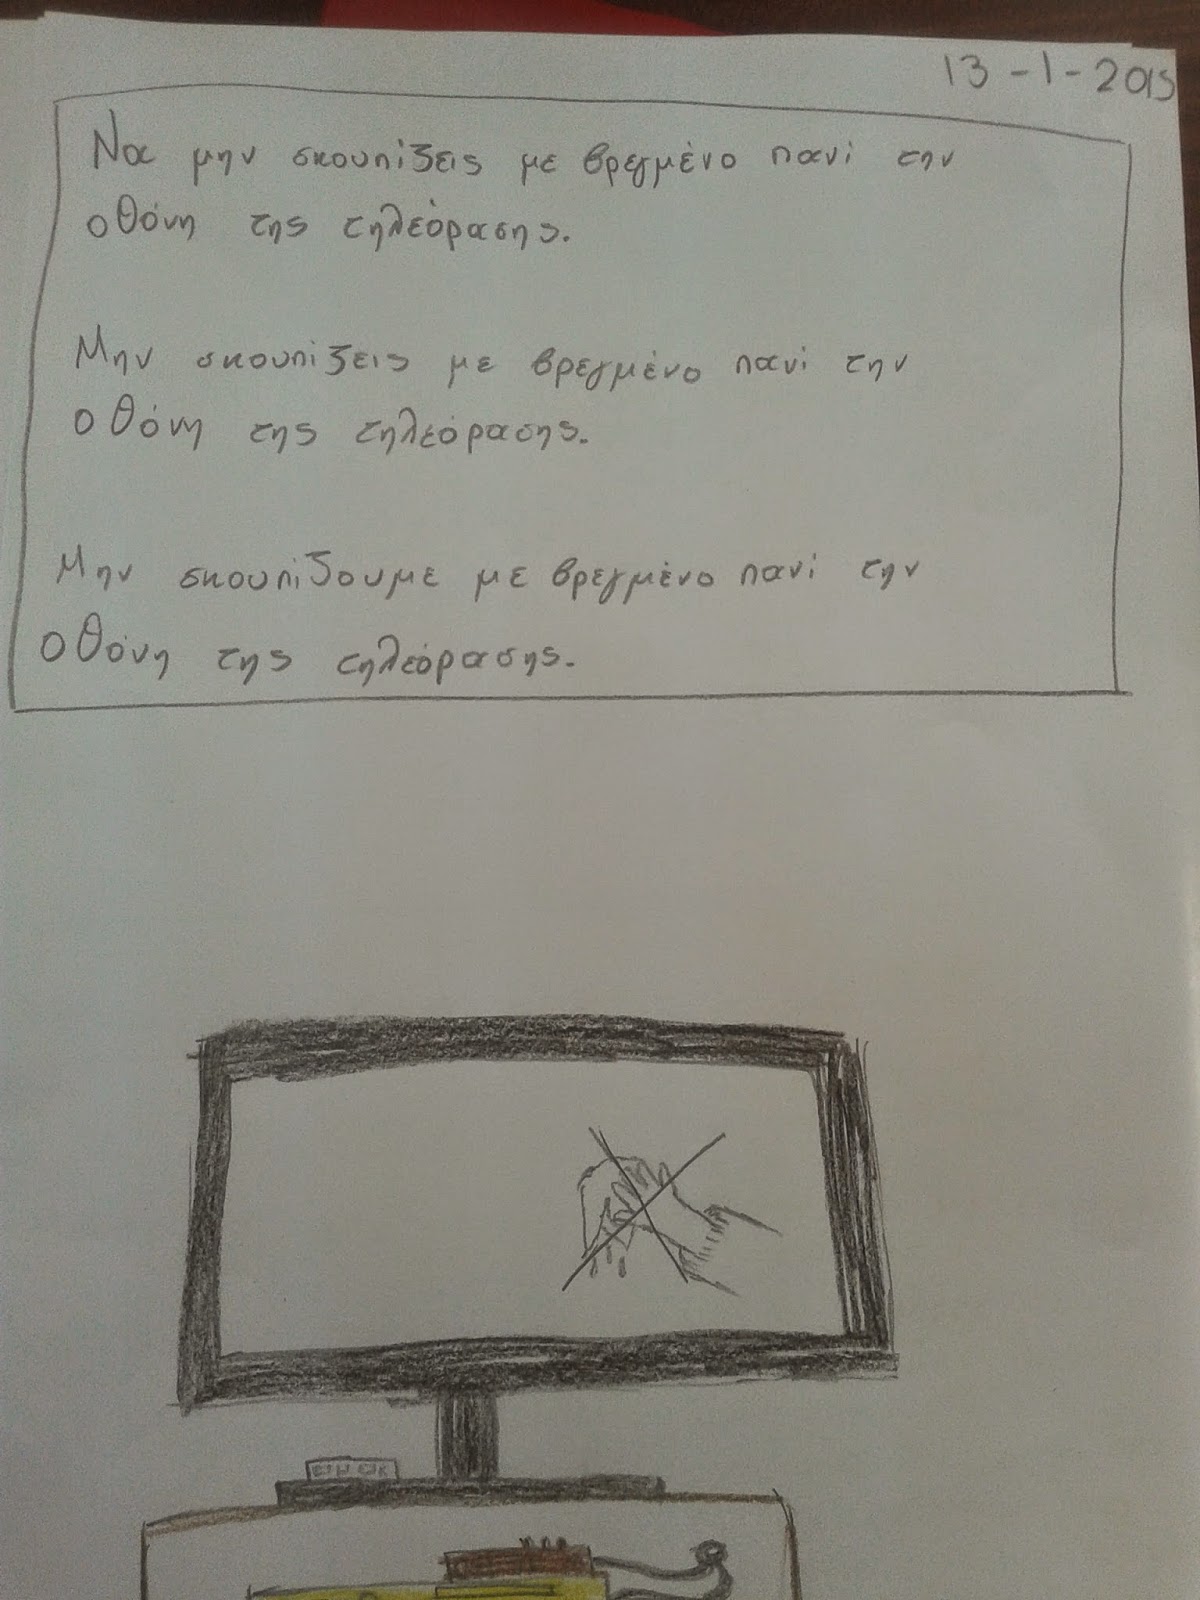 13-1-2015
Να μην σκουπίζεις με βρεγμένο πανί την
οθόνη της τηλεόρασης.
Μην σκουπίζεις με βρεγμένο πανί την
οθόνη της τηλεόρασης.
Μην σκουπίζουμε με βρεγμένο πανί την
οθόνη της τηλεόρασης.